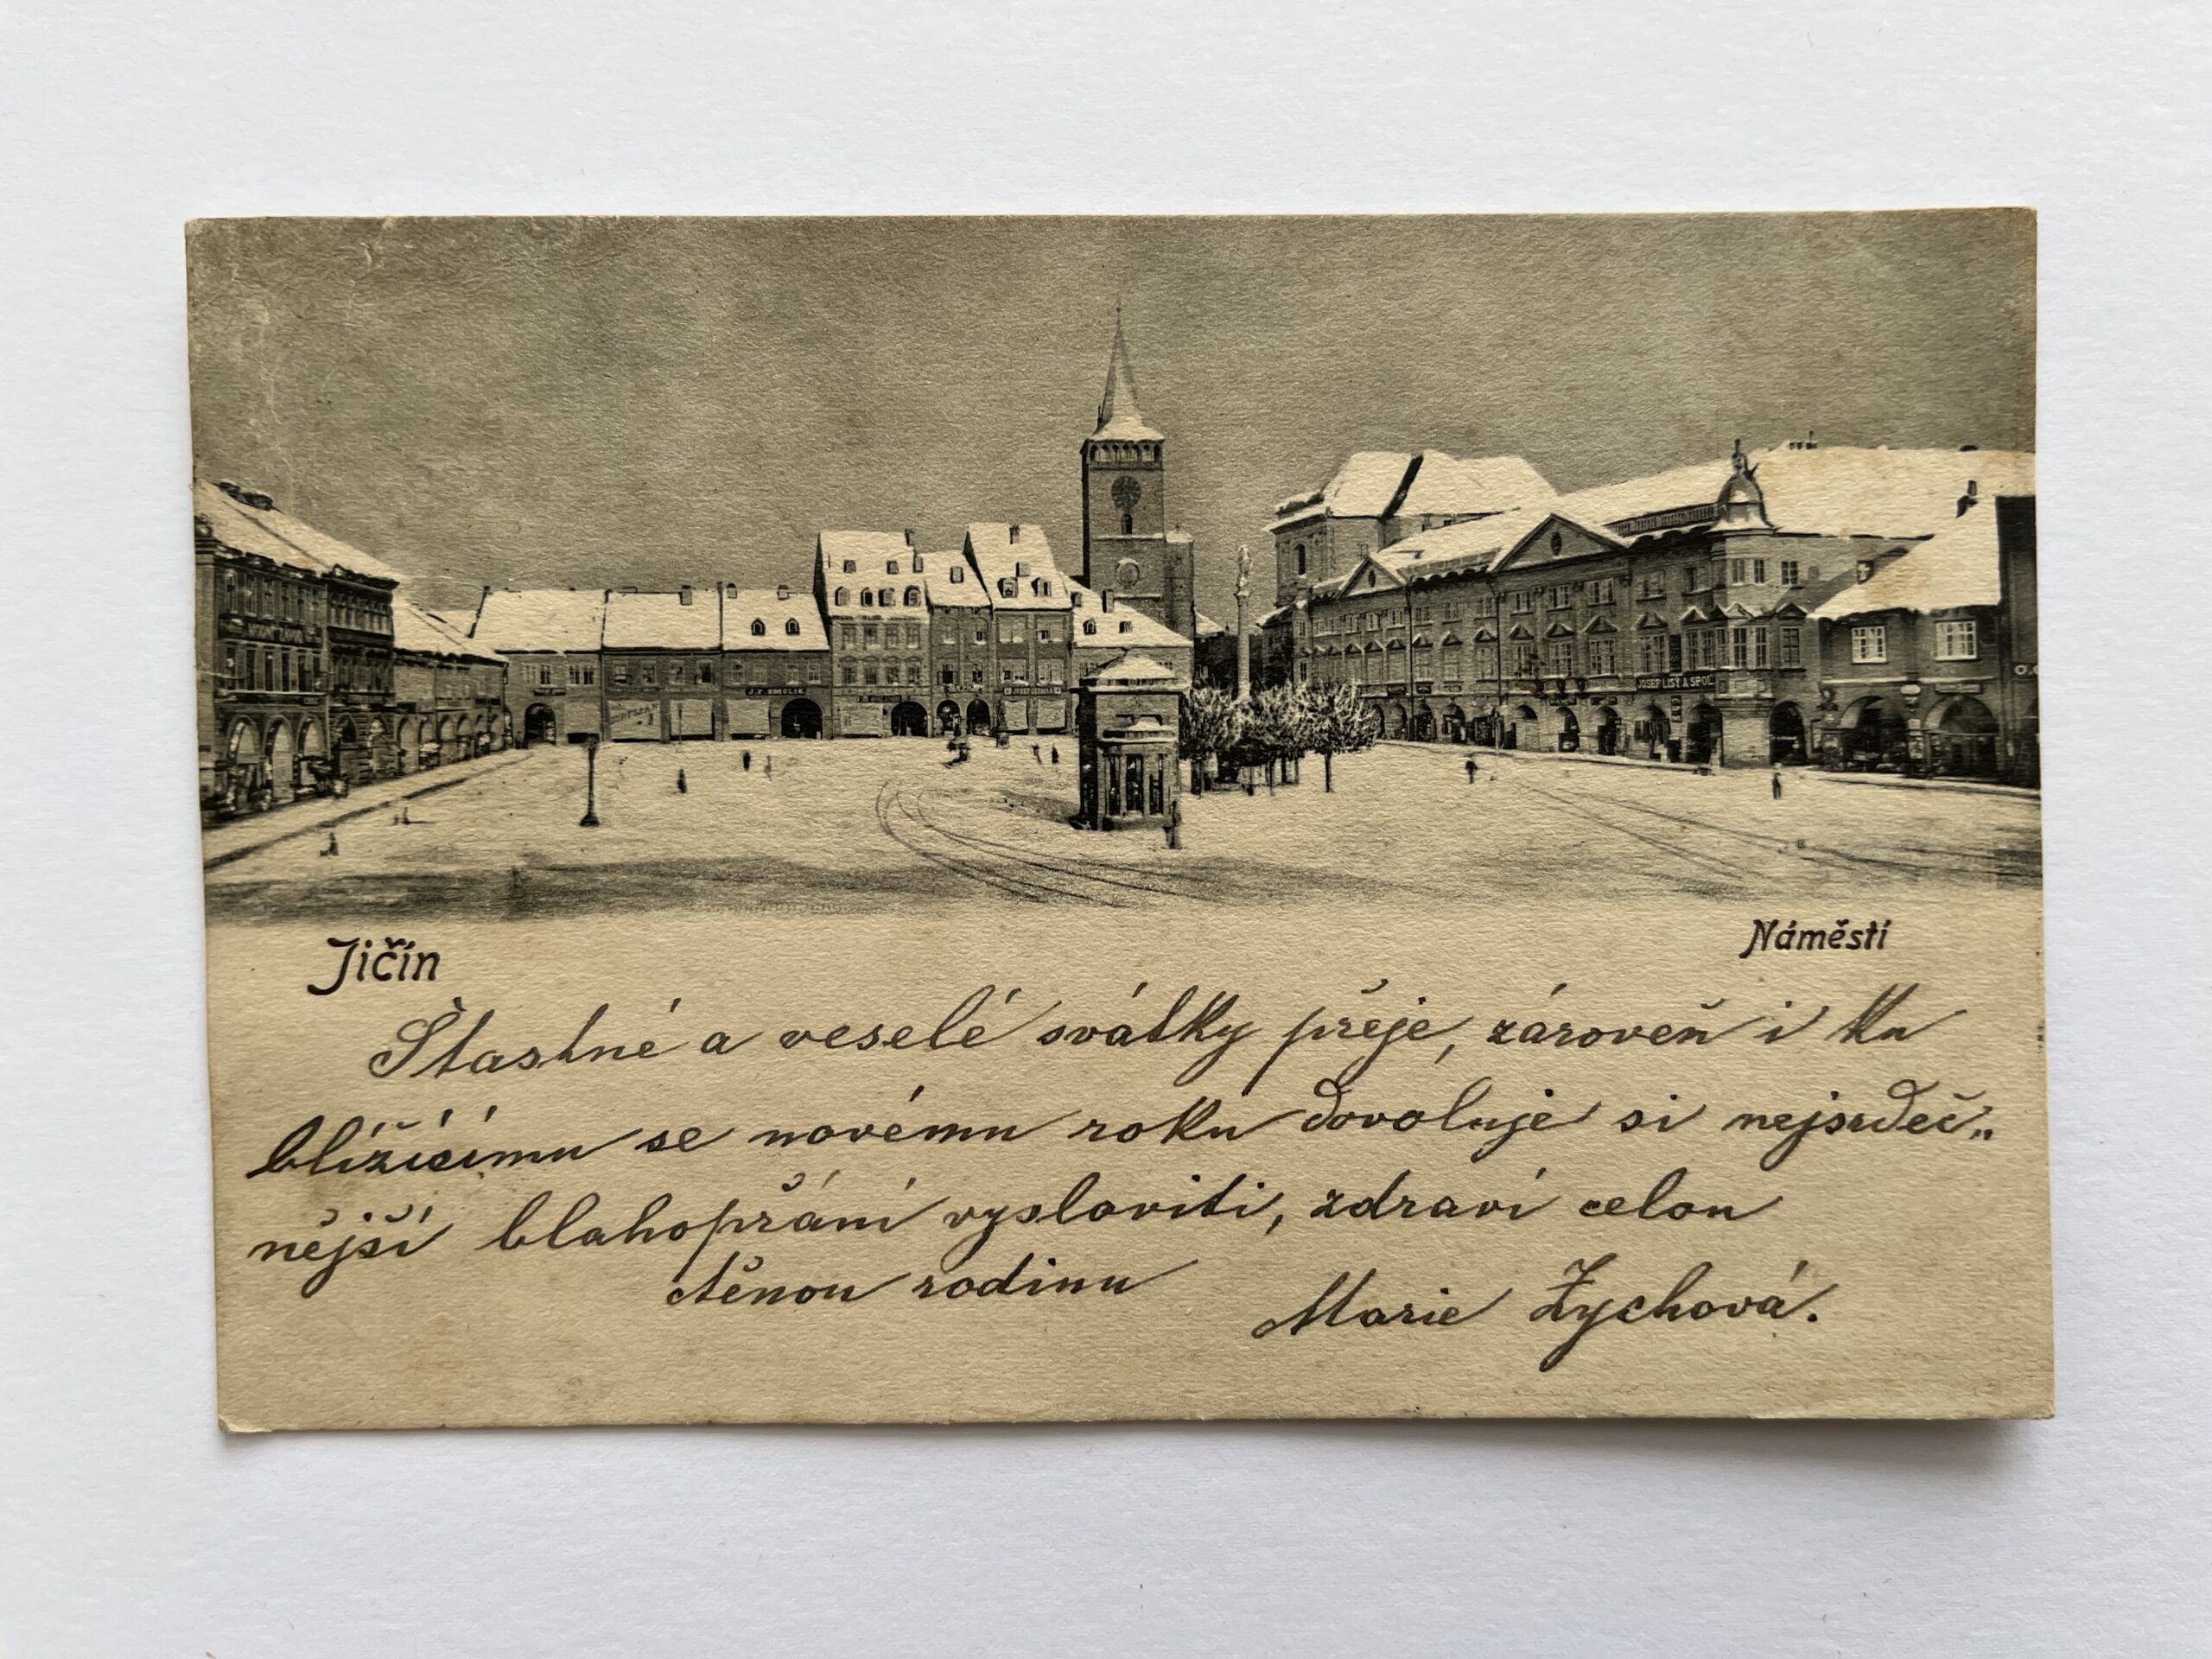 J.F. SMOLIK
JOSEF LISÝ A SPOL.
Jičín
Náměstí
Šťastné a veselé svátky přeje, zároveň i ku
blížícímu se novému roku dovoluje si nejsrdeč„
nější blahopřání vysloviti, zdraví celou
ctěnou rodinu
Marie Zychová.